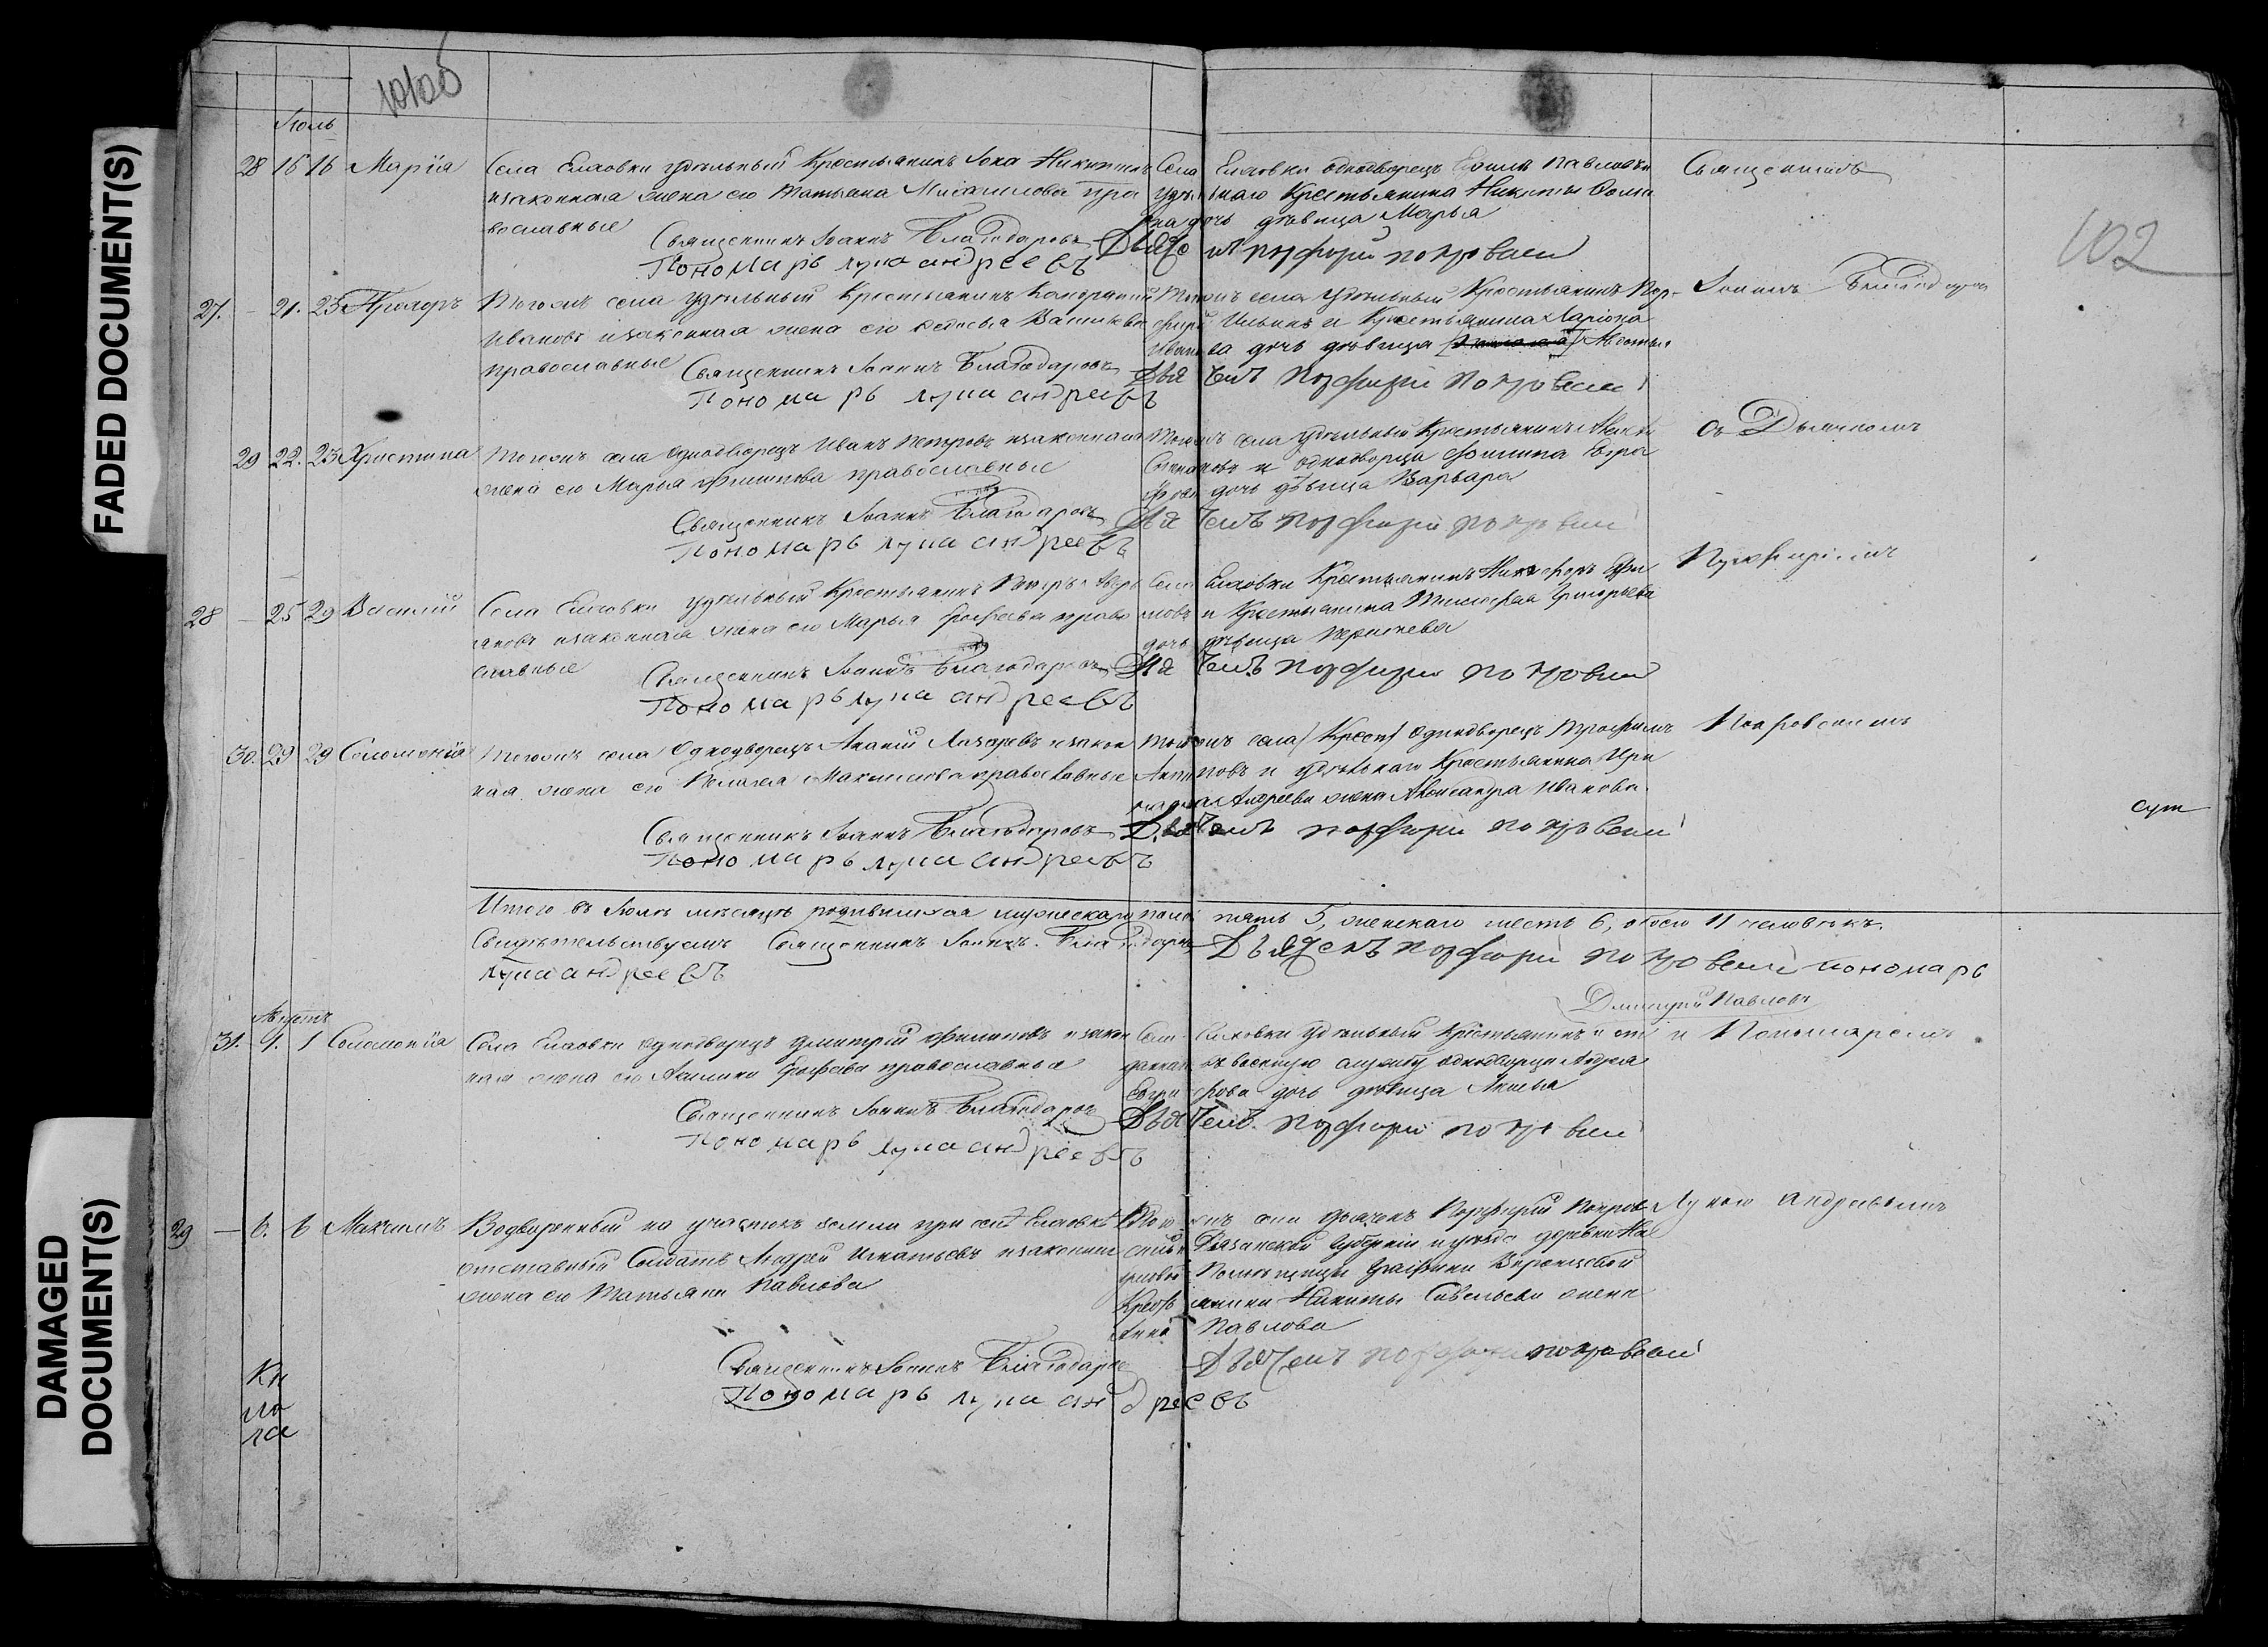 FADED DOCUMENT(S)
DAMAGED DOCUMENT(S)
102
Іюль
28 15 16 Марія
Села Елховки удѣльный Крестьянинъ Іона Никитинъ
и законная жена его Татьяна Михаилова пра
вославные
Священникъ Іоаннъ Благодаровъ
Пономарь лупа андреевъ
Села Елховки однодворецъ Павловъ и
удѣльнаго Крестьянина Никиты
дочь дѣвица Марья
Дьячекъ порфирій покровскій
Священникъ
27. – 21. 25 Прохоръ
Тогожъ села удѣльный Крестьянинъ
Ивановъ и законная жена его Ѳедосья Васильева
православные
Священникъ Іоаннъ Благодаровъ
Пономарь лупа андреевъ
Тогожъ села удѣльный Крестьянинъ Пор-
фирій Ильинъ и Крестьянина Ларіона
Иванова дочь дѣвица
Дьячекъ порфирій покровскій
Іоаннъ Благодаровъ
29 22. 25 Христина
Тогожъ села однодворецъ Иванъ Петровъ и законная
жена его Марья Филипова православные
Священникъ Іоаннъ Благодаровъ
Пономарь лупа андреевъ
Тогожъ села удѣльный Крестьянинъ
Степановъ и однодворца Филипа Евгра
фова дочь дѣвица Варвара
Дьячекъ порфирій покровскій
съ Дьячкомъ
28 – 25 29 Василій
Села Елховки удѣльный Крестьянинъ Петръ
яновъ и законная жена его Марья Ерофеева право
славные
Священникъ Іоаннъ Благодаровъ
Пономарь лупа андреевъ
Села Елховки Крестьянинъ Никифоръ Ефи
мовъ и Крестьянина Тимофея Григорьева
дочь дѣвица
Дьячекъ порфирій покровскій
Порфиріемъ
30. 29 29 Соломонія
Тогожъ села Однодворецъ Ананій Лазаревъ и закон
ная жена его Пелагея Максимова православные
Священникъ Іоаннъ Благодаровъ
Пономарь лупа андреевъ
Тогожъ села (Крест) Однодворецъ Трофимъ
Антиповъ и удѣльнаго Крестьянина
Андреева жена Александра Иванова.
Дьячекъ порфирій покровскій
Покровскимъ
Итого въ Іюлѣ мѣсяцѣ родившихся мужескаго пола пять 5, женскаго шесть 6, обоего 11 человѣкъ.
Свидѣтельствуемъ Священникъ Іоаннъ Благодаровъ Дьячекъ порфирій покровскій пономарь
лупа андреевъ
Дмитрій Павловъ
Августъ
31. 1. 1 Соломонія
Села Елховки однодворецъ Дмитрій Филиповъ и закон
ная жена его Акилина Ерофеева православные
Священникъ Іоаннъ Благодаровъ
Пономарь лупа андреевъ
Села Елховки удѣльный Крестьянинъ и от
даннаго въ военную службу однодворца Андрея
Евграфова дочь дѣвица
Дьячекъ порфирій покровскій
и Пономаремъ
29 – 6. 6 Максимъ
Водворенный на участкѣ земли при селѣ Елховкѣ
отставный Солдатъ Андрей Игнатьевъ и законная
жена его Татьяна Павлова
Священникъ Іоаннъ Благодаровъ
Пономарь лупа андреевъ
Тогожъ села дьячекъ Порфирій Покров
скій и Рязанской губерніи и уѣзда деревни
Помѣщицы Графини Воронцовой
Крестьянина Никиты Савельева жена
Анна Павлова
Дьячекъ порфирій покровскій
Лупою Андреевымъ